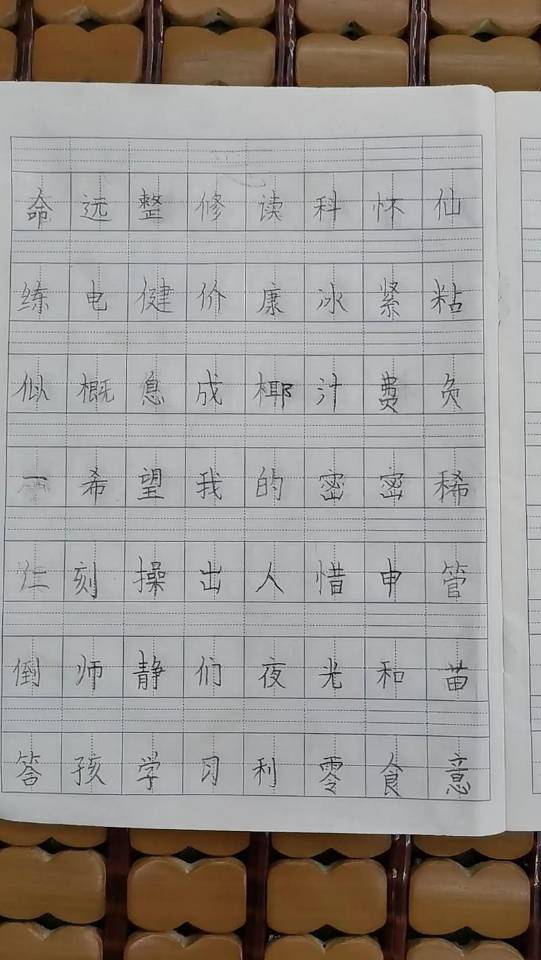 命远整修读科怀仙
练电健价康冰紧粘
似概息成椰汁费负
一希望我的密密稀
仁刻操出人惜申管
倒师静们夜光和苗
答孩学习利零食意